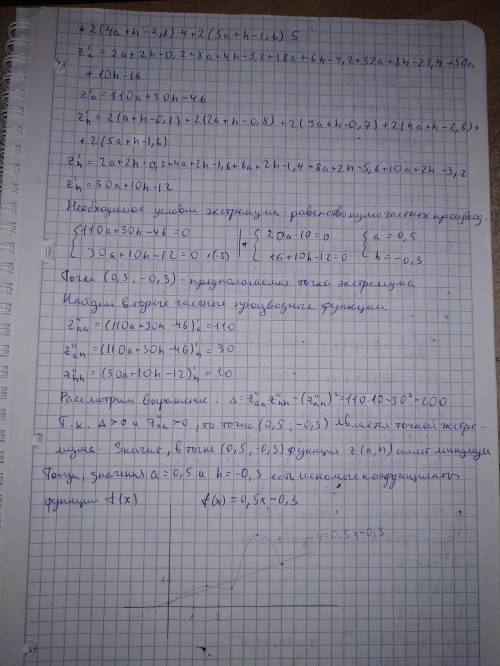 +2(4a+h-2,8)·4+2(5a+h-1,6)·5
z'a=2a+2h-0,2+8a+4h-3,2+18a+6h-4,2+32a+8h-22,4+50a
+10h-16
z'a=110a+30h-46
z'h=2(a+h-0,1)+2(2a+h-0,8)+2(3a+h-0,7)+2(4a+h-2,8)+
+2(5a+h-1,6)
z'h=2a+2h-0,2+4a+2h-1,6+6a+2h-1,4+8a+2h-5,6+10a+2h-3,2
z'h=30a+10h-12
Необходимое условие экстремума равенство нулю частных производ.
{110a+30h-46=0 {20a-10=0 {a=0,5
30a+10h-12=0 ·(-3) 16+10h-12=0 h=-0,3
Точка (0,5; -0,3) - предполагаемая точка экстремума
Найдем вторые частные производные функции
z''aa=(110a+30h-46)'a=110
z''ah=(110a+30h-46)'h=30
z''hh=(30a+10h-12)'h=10
Рассмотрим выражение: Δ=z''aa z''hh-(z''ah)²=110·10-30²=200
Т.к. Δ>0 и z''aa>0, то точка (0,5; -0,3) является точкой экстре-
мума. Значит, в точке (0,5; -0,3) функция z(a,h) имеет минимум
Тогда, значения a=0,5 и h=-0,3 есть искомые коэффициенты
функции f(x) f(x)=0,5x-0,3
y=0,5x-0,3
1
1 2